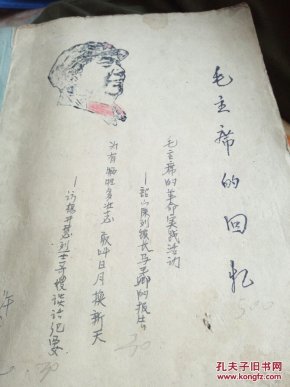 毛主席的回忆
毛主席的革命实践活动
—韶山陈列馆长马玉卿的报告
为有牺牲多壮志 敢叫日月换新天
—访杨开慧烈士哥嫂谈话纪要
孔夫子旧书网